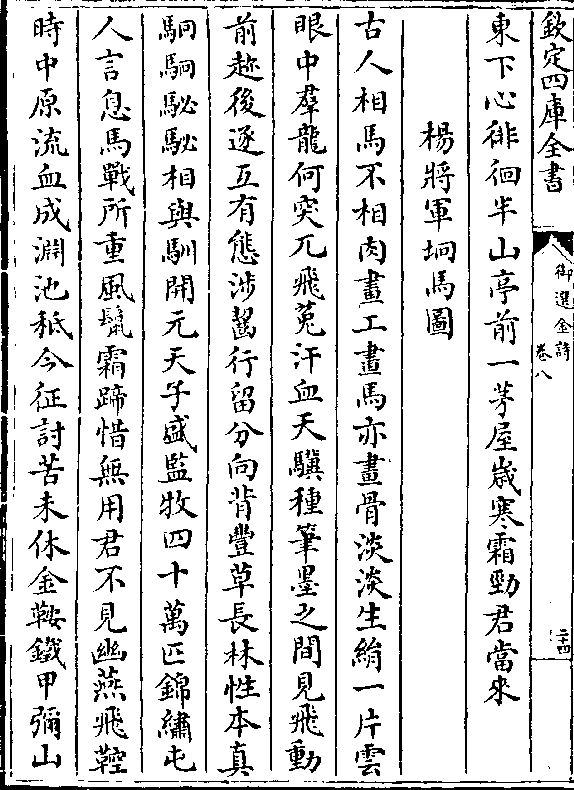 欽定四庫全書
御選金詩
卷八
二十四
東下心徘徊半山亭前一茅屋歲寒霜勁君當來
楊將軍坰馬圖
古人相馬不相肉畫工畫馬亦畫骨淡淡生綃一片雲
眼中羣龍何突兀飛菟汗血天驥種筆墨之間見飛動
前趁後逐互有態涉齧行留分向背豐草長林性本真
駉駉駜駜相與馴開元天子盛監牧四十萬匹錦繡屯
人言息馬戰所重風鬉霜蹄惜無用君不見幽燕飛鞚
時中原流血成淵池秪今征討苦未休金鞍鐵甲彌山